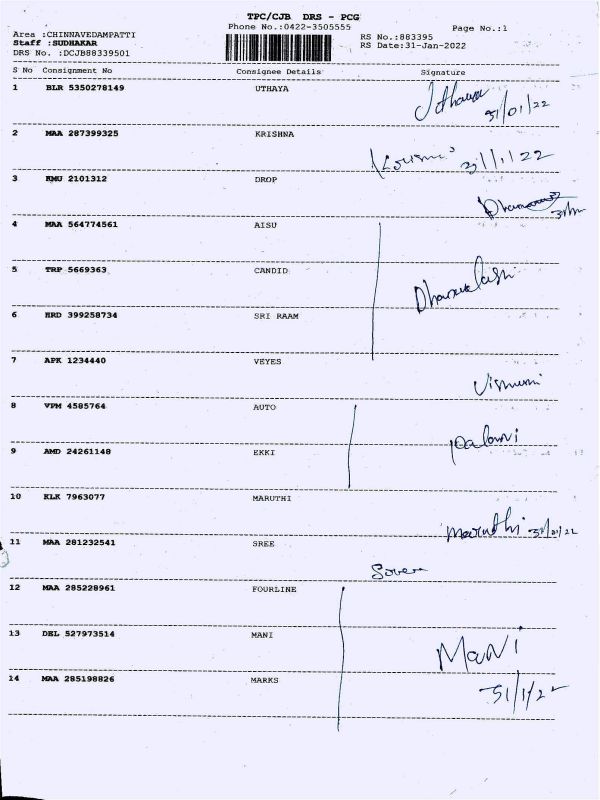 TPC/CJB DRS - PCG
Phone No.:0422-3505555 Page No.:1
Area :CHINNAVEDAMPATTI RS No.:883395
Staff :SUDHAKAR RS Date:31-Jan-2022
DRS No. :DCJB88339501
S No Consignment No Consignee Details Signature
1 BLR 5350278149 UTHAYA
31/01/22
2 MAA 287399325 KRISHNA
31/1/22
3 KMU 2101312 DROP
4 MAA 564774561 AISU
5 TRP 5669363 CANDID
6 HRD 399258734 SRI RAAM
7 APK 1234440 VEYES
8 VPM 4585764 AUTO
9 AMD 24261148 EKKI
10 KLK 7963077 MARUTHI
Maruthi 31/01/22
11 MAA 281232541 SREE
12 MAA 285228961 FOURLINE
13 DEL 527973514 MANI
Mani
14 MAA 285198826 MARKS
31/1/22